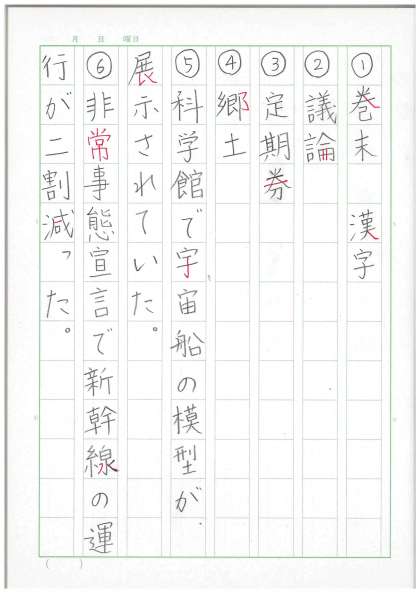 月 日 曜日
①巻末 漢字
②議論
③定期券
④郷土
⑤科学館で宇宙船の模型が
展示されていた。
⑥非常事態宣言で新幹線の運
行が二割減った。
( )